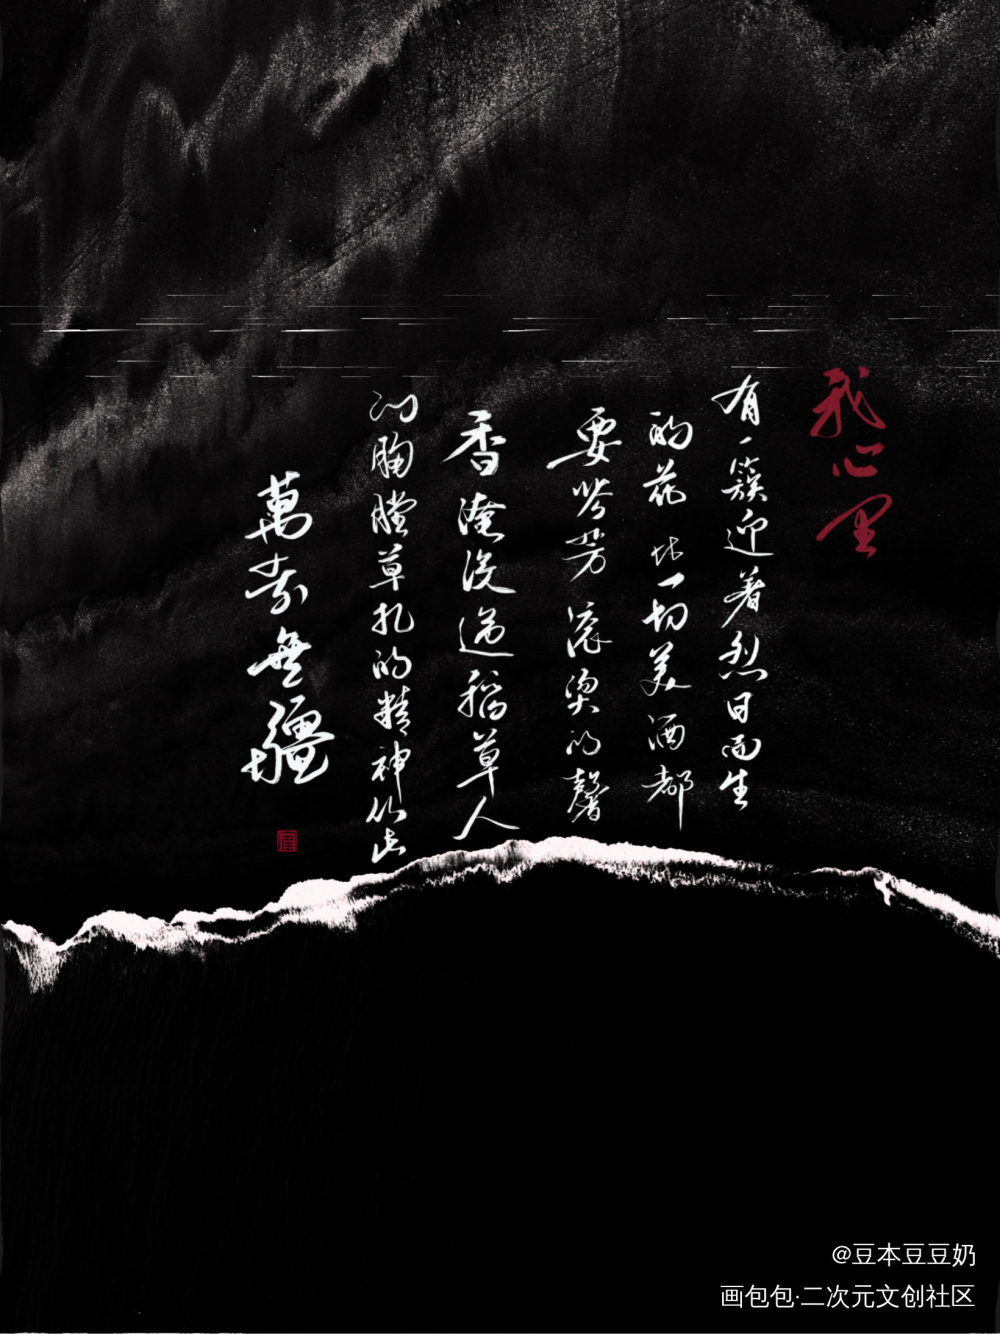 我心里
有一簇迎着烈日而生
的花 比一切美酒都
要芬芳 滚烫的馨
香淹没过稻草人
的胸膛草扎的精神从此
萬壽無疆
@豆本豆豆奶
画包包·二次元文创社区